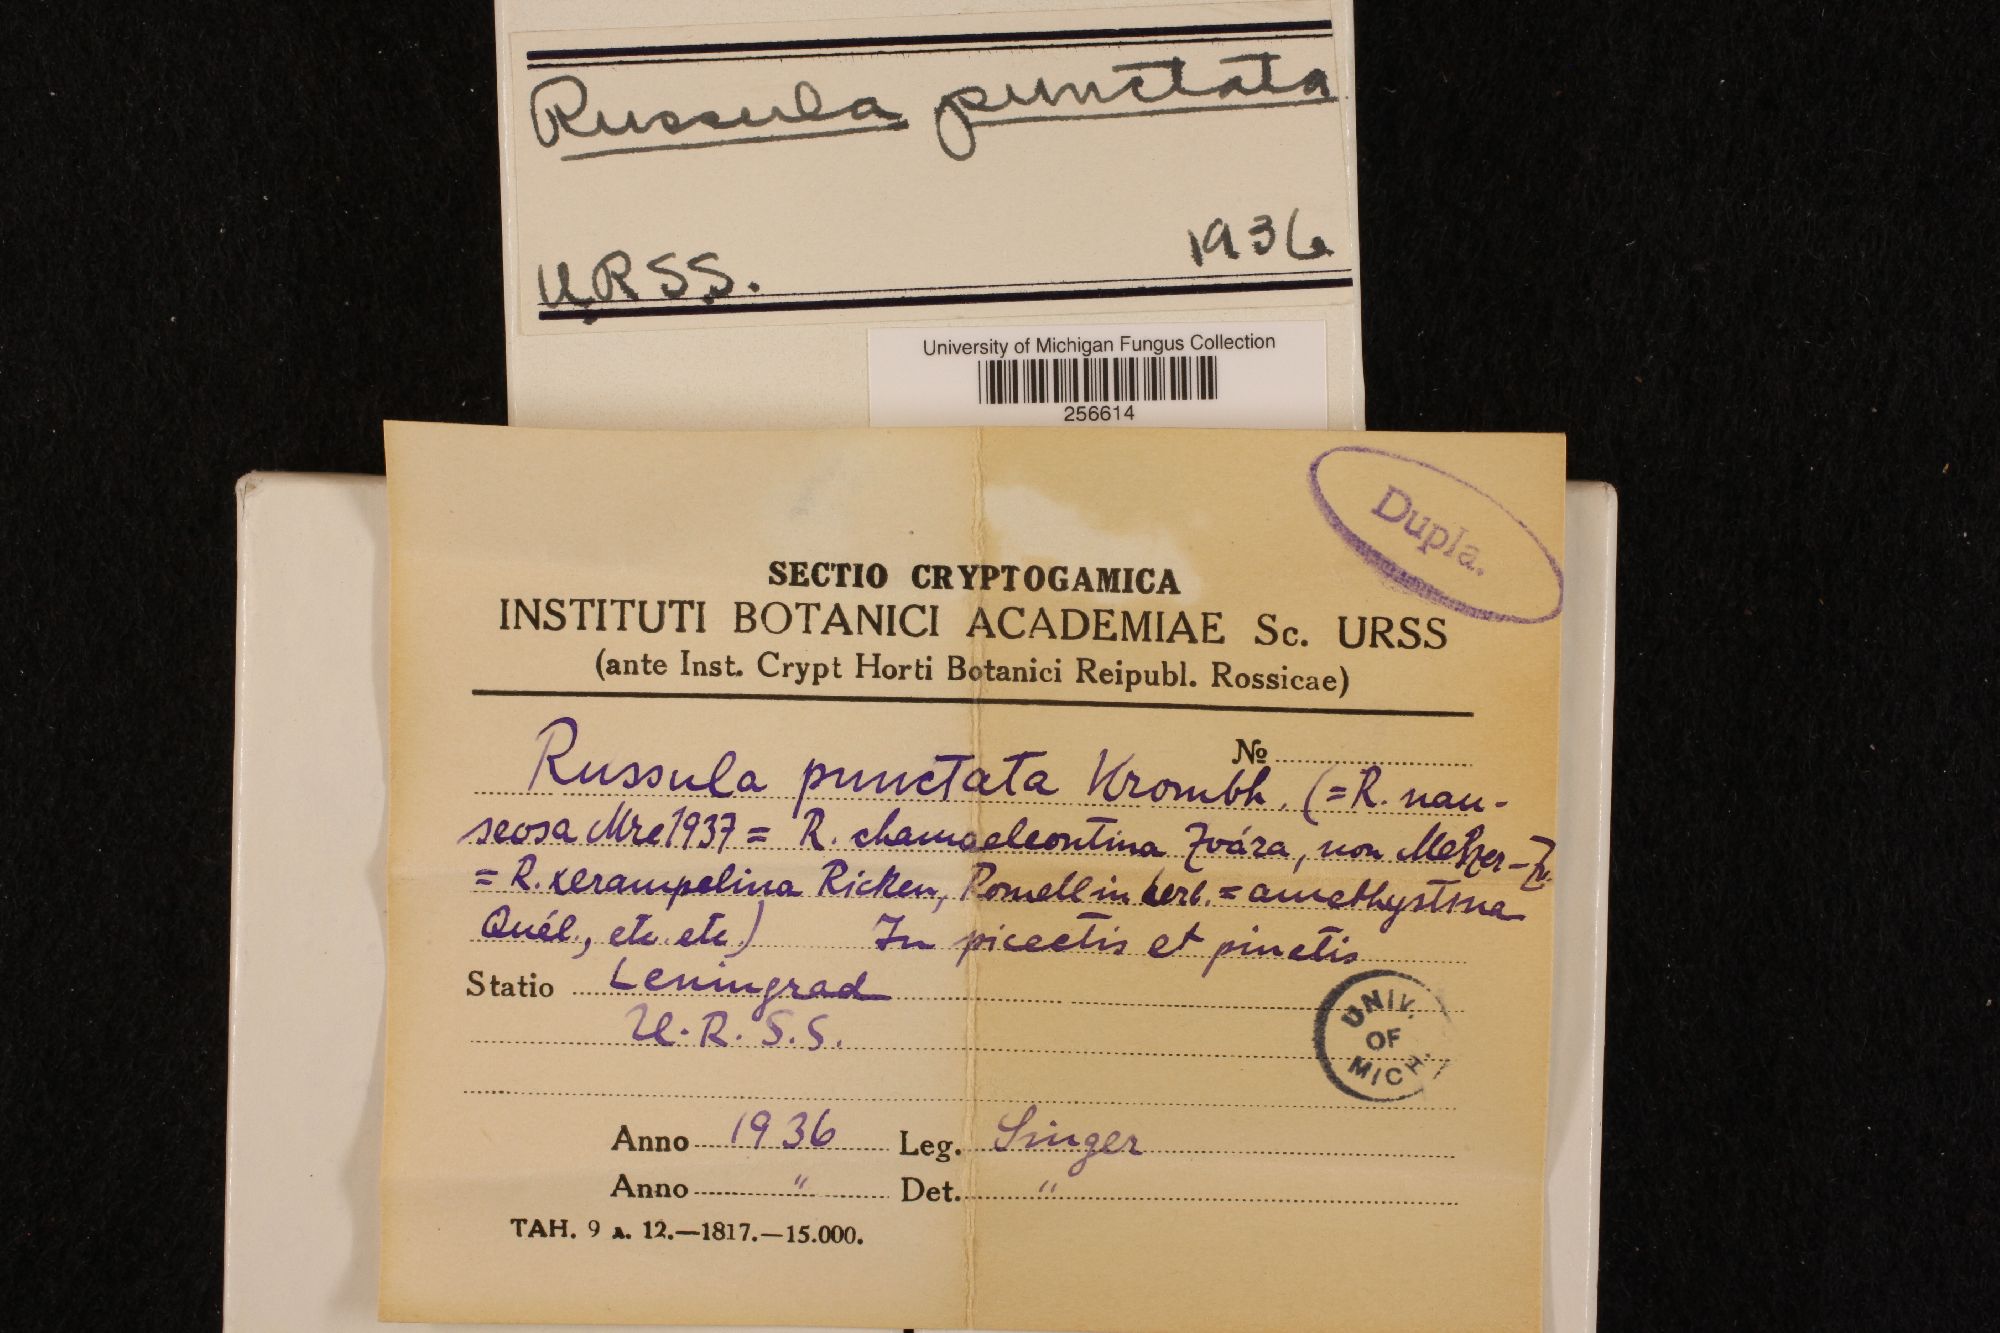 Russula punctata
U.R.S.S. 1936
University of Michigan Fungus Collection
256614
Dupla.
SECTIO CRYPTOGAMICA
INSTITUTI BOTANICI ACADEMIAE Sc. URSS
(ante Inst. Crypt Horti Botanici Reipubl. Rossicae)
№
Russula punctata Krombh. (=R. nau-
seosa Mre 1937 = R. chamaeleontina Zvára, non Melzer-Zv.
= R. xerampelina Ricken, Romell in herb. = amethystina
Quél., etc. etc.) In piceetis et pinetis
Statio Leningrad
U.R.S.S.
UNIV. OF MICH.
Anno 1936 Leg. Singer
Anno " Det. "
ТАН. 9 л. 12.—1817.—15.000.